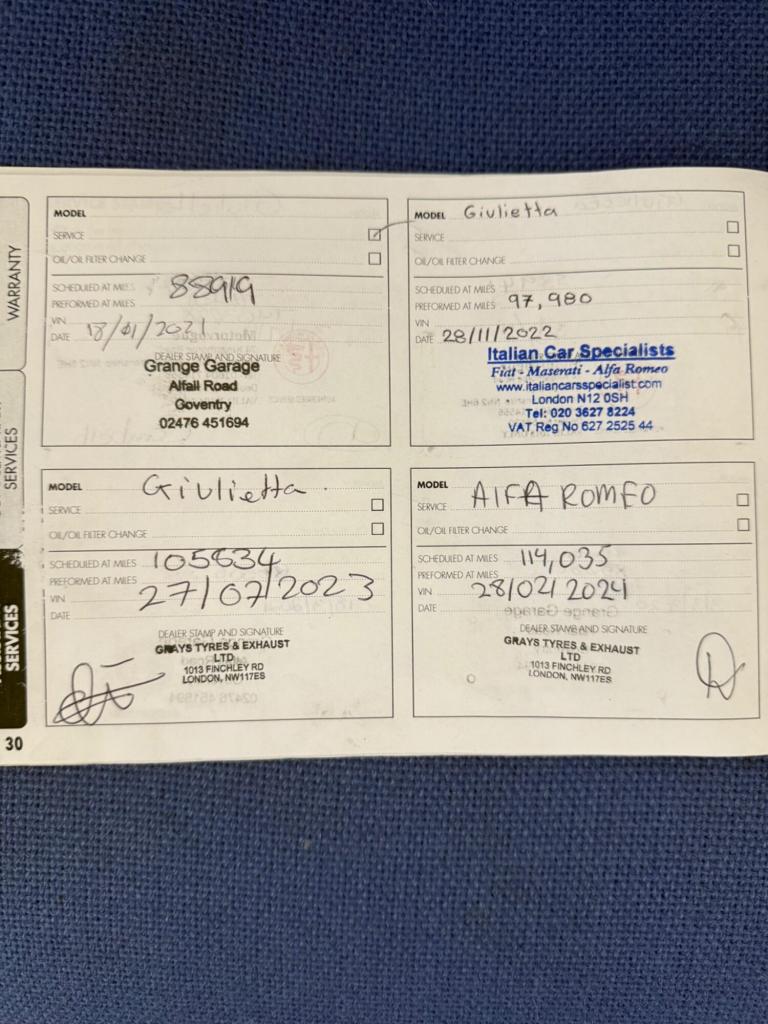 WARRANTY
SERVICES
SERVICES
30
MODEL
SERVICE
OIL/OIL FILTER CHANGE
SCHEDULED AT MILES 88919
PREFORMED AT MILES
VIN
DATE 18/01/2021
DEALER STAMP AND SIGNATURE
Grange Garage
Alfall Road
Coventry
02476 451694
MODEL Giulietta
SERVICE
OIL/OIL FILTER CHANGE
SCHEDULED AT MILES
PREFORMED AT MILES 97,980
VIN
DATE 28/11/2022
Italian Car Specialists
Fiat - Maserati - Alfa Romeo
www.italiancarsspecialist.com
London N12 0SH
Tel: 020 3627 8224
VAT Reg No 627 2525 44
MODEL Giulietta.
SERVICE
OIL/OIL FILTER CHANGE
SCHEDULED AT MILES 105834
PREFORMED AT MILES
VIN 27/07/2023
DATE
DEALER STAMP AND SIGNATURE
GRAYS TYRES & EXHAUST
LTD
1013 FINCHLEY RD
LONDON, NW117ES
MODEL
SERVICE AlFA ROMEO
OIL/OIL FILTER CHANGE
SCHEDULED AT MILES 114,035
PREFORMED AT MILES
VIN 28/02/2024
DATE
DEALER STAMP AND SIGNATURE
GRAYS TYRES & EXHAUST
LTD
1013 FINCHLEY RD
LONDON, NW117ES